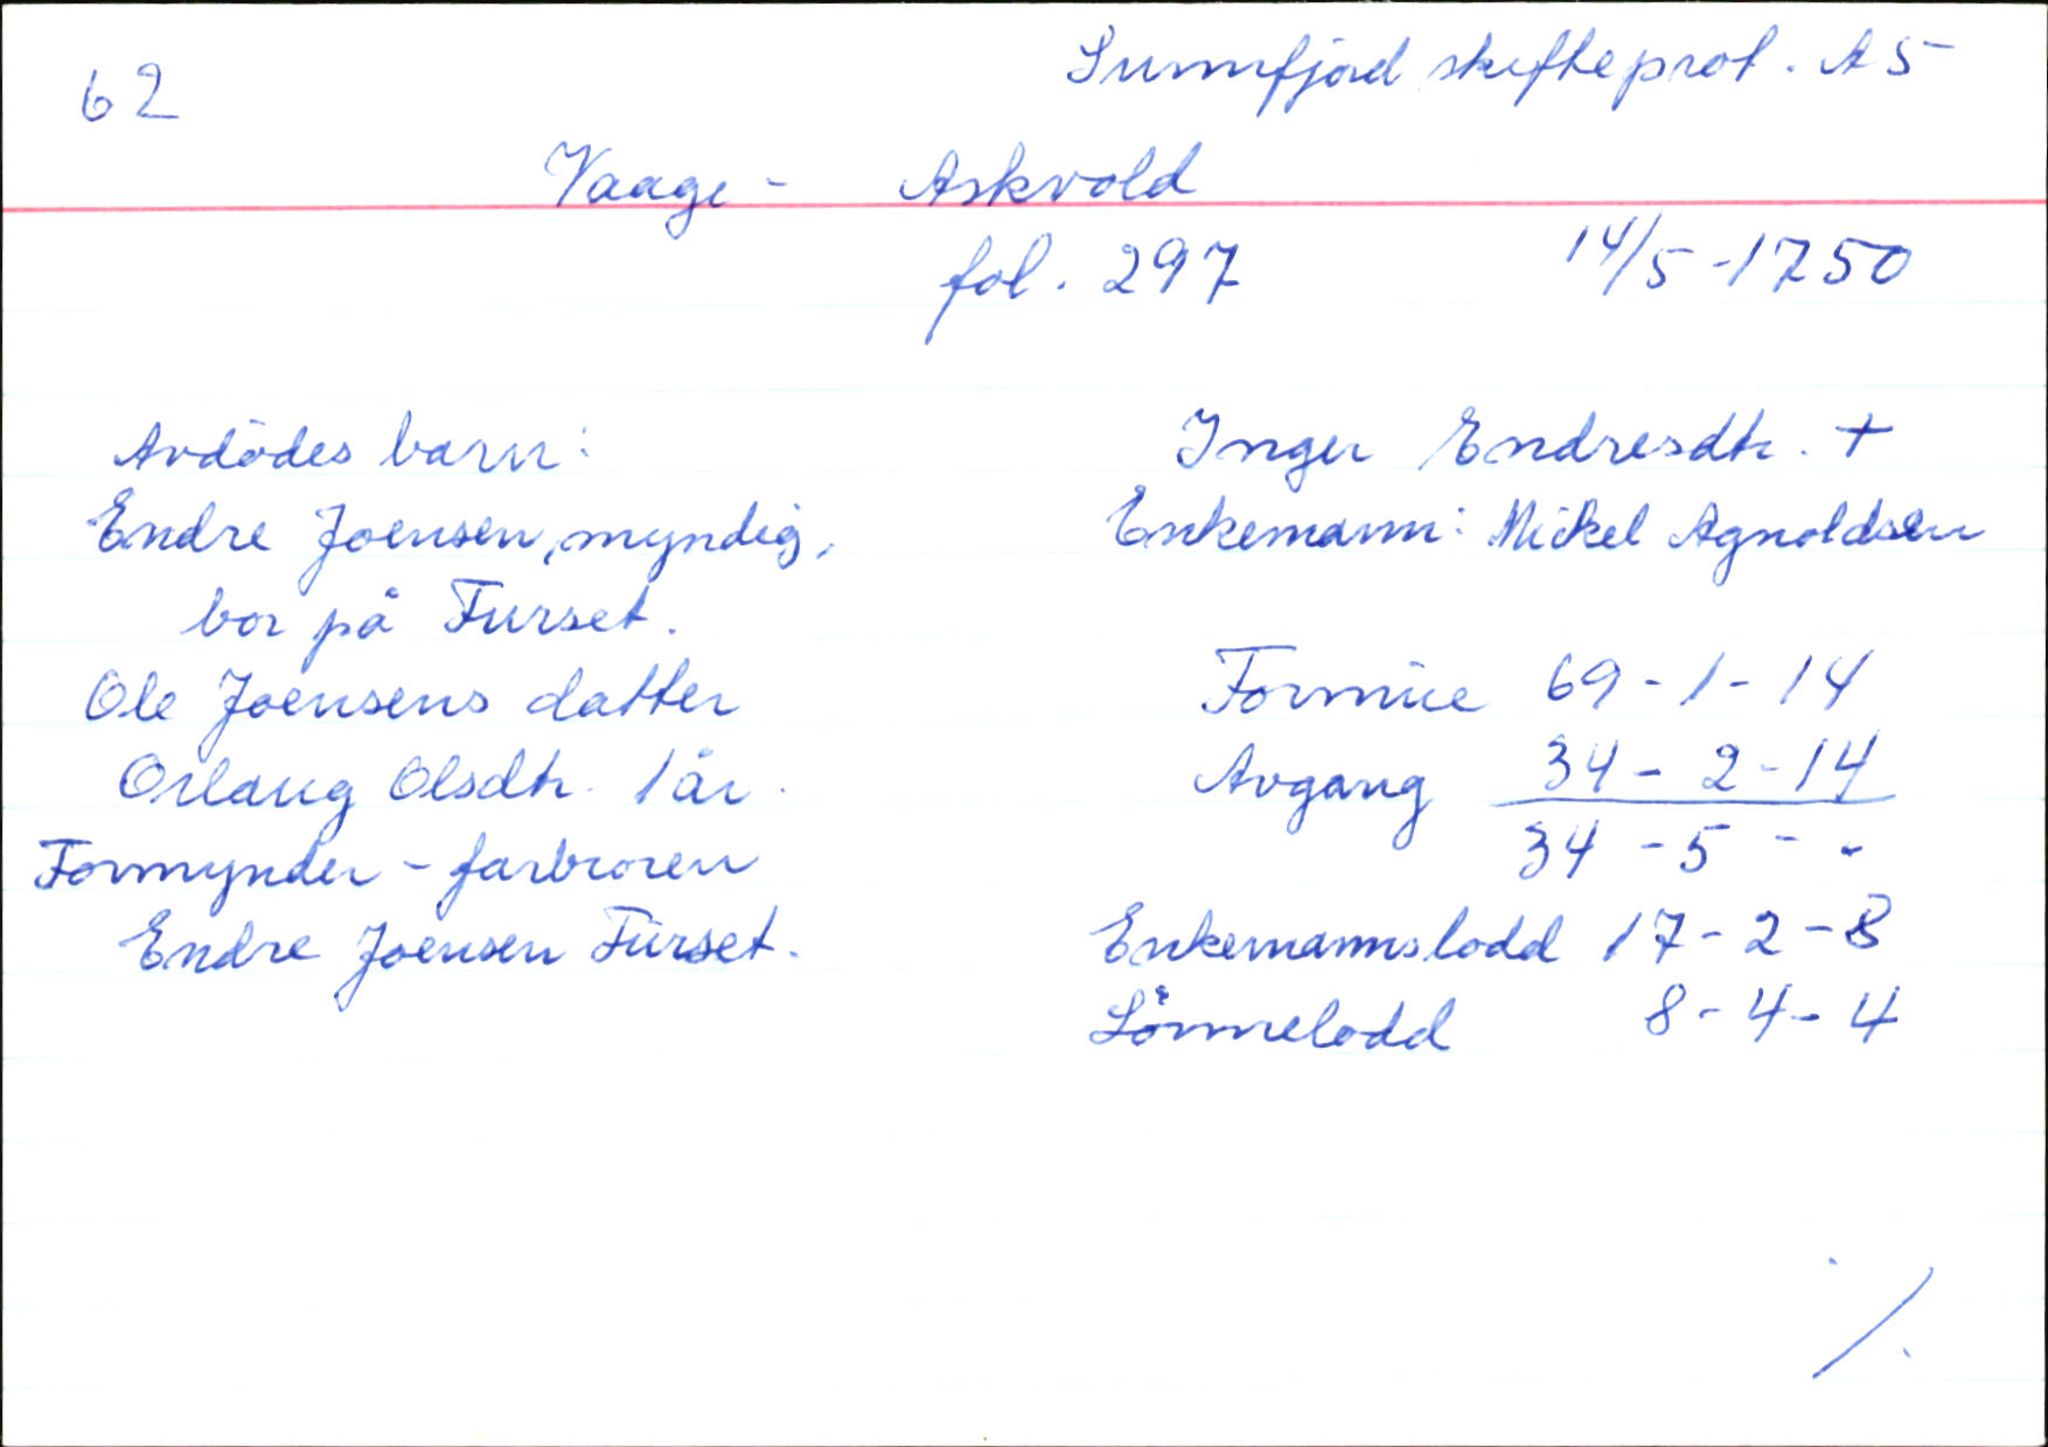 62
Sunnfjord skifteprot. A 5
Vaage - Askvold
fol. 297 14/5-1750
Avdödes barn:
Endre Joensen, myndig,
bor på Furset.
Ole Joensens datter
Orlaug Olsdtr. 1 år.
Formynder - farbroren
Endre Joensen Furset.
Inger Endresdtr. +
Enkemann: Mickel Agnoldsen
Formue 69-1-14
Avgang 34-2-14
34-5 - -
Enkemannslodd 17-2-8
Sönnelodd 8-4-4
./.